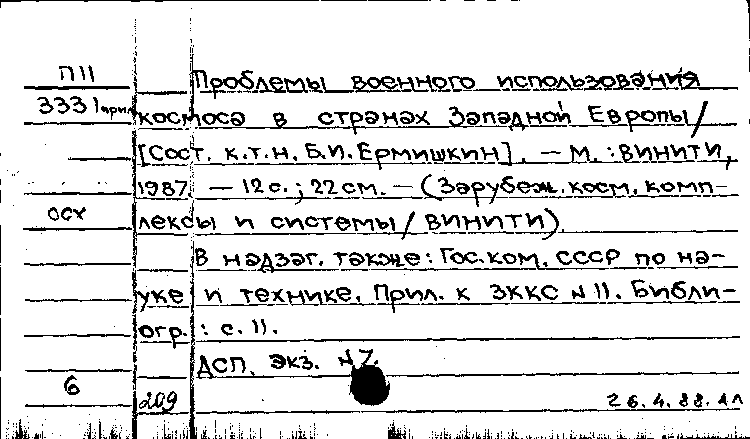 П11
3331 прил
осх
6
Проблемы военного использования
космоса в странах Западной Европы/
[Сост. к.т.н. Б.И. Ермишкин]. – М. : ВИНИТИ,
1987. – 12 с. ; 22 см. – (Зарубеж. косм. комп-
лексы и системы / ВИНИТИ).
В надзаг. также: Гос. ком. СССР по на-
уке и технике. Прил. к ЗККС N 11. Библи-
огр. : с. 11.
ДСП. Экз. N 7.
209
26.4.88.